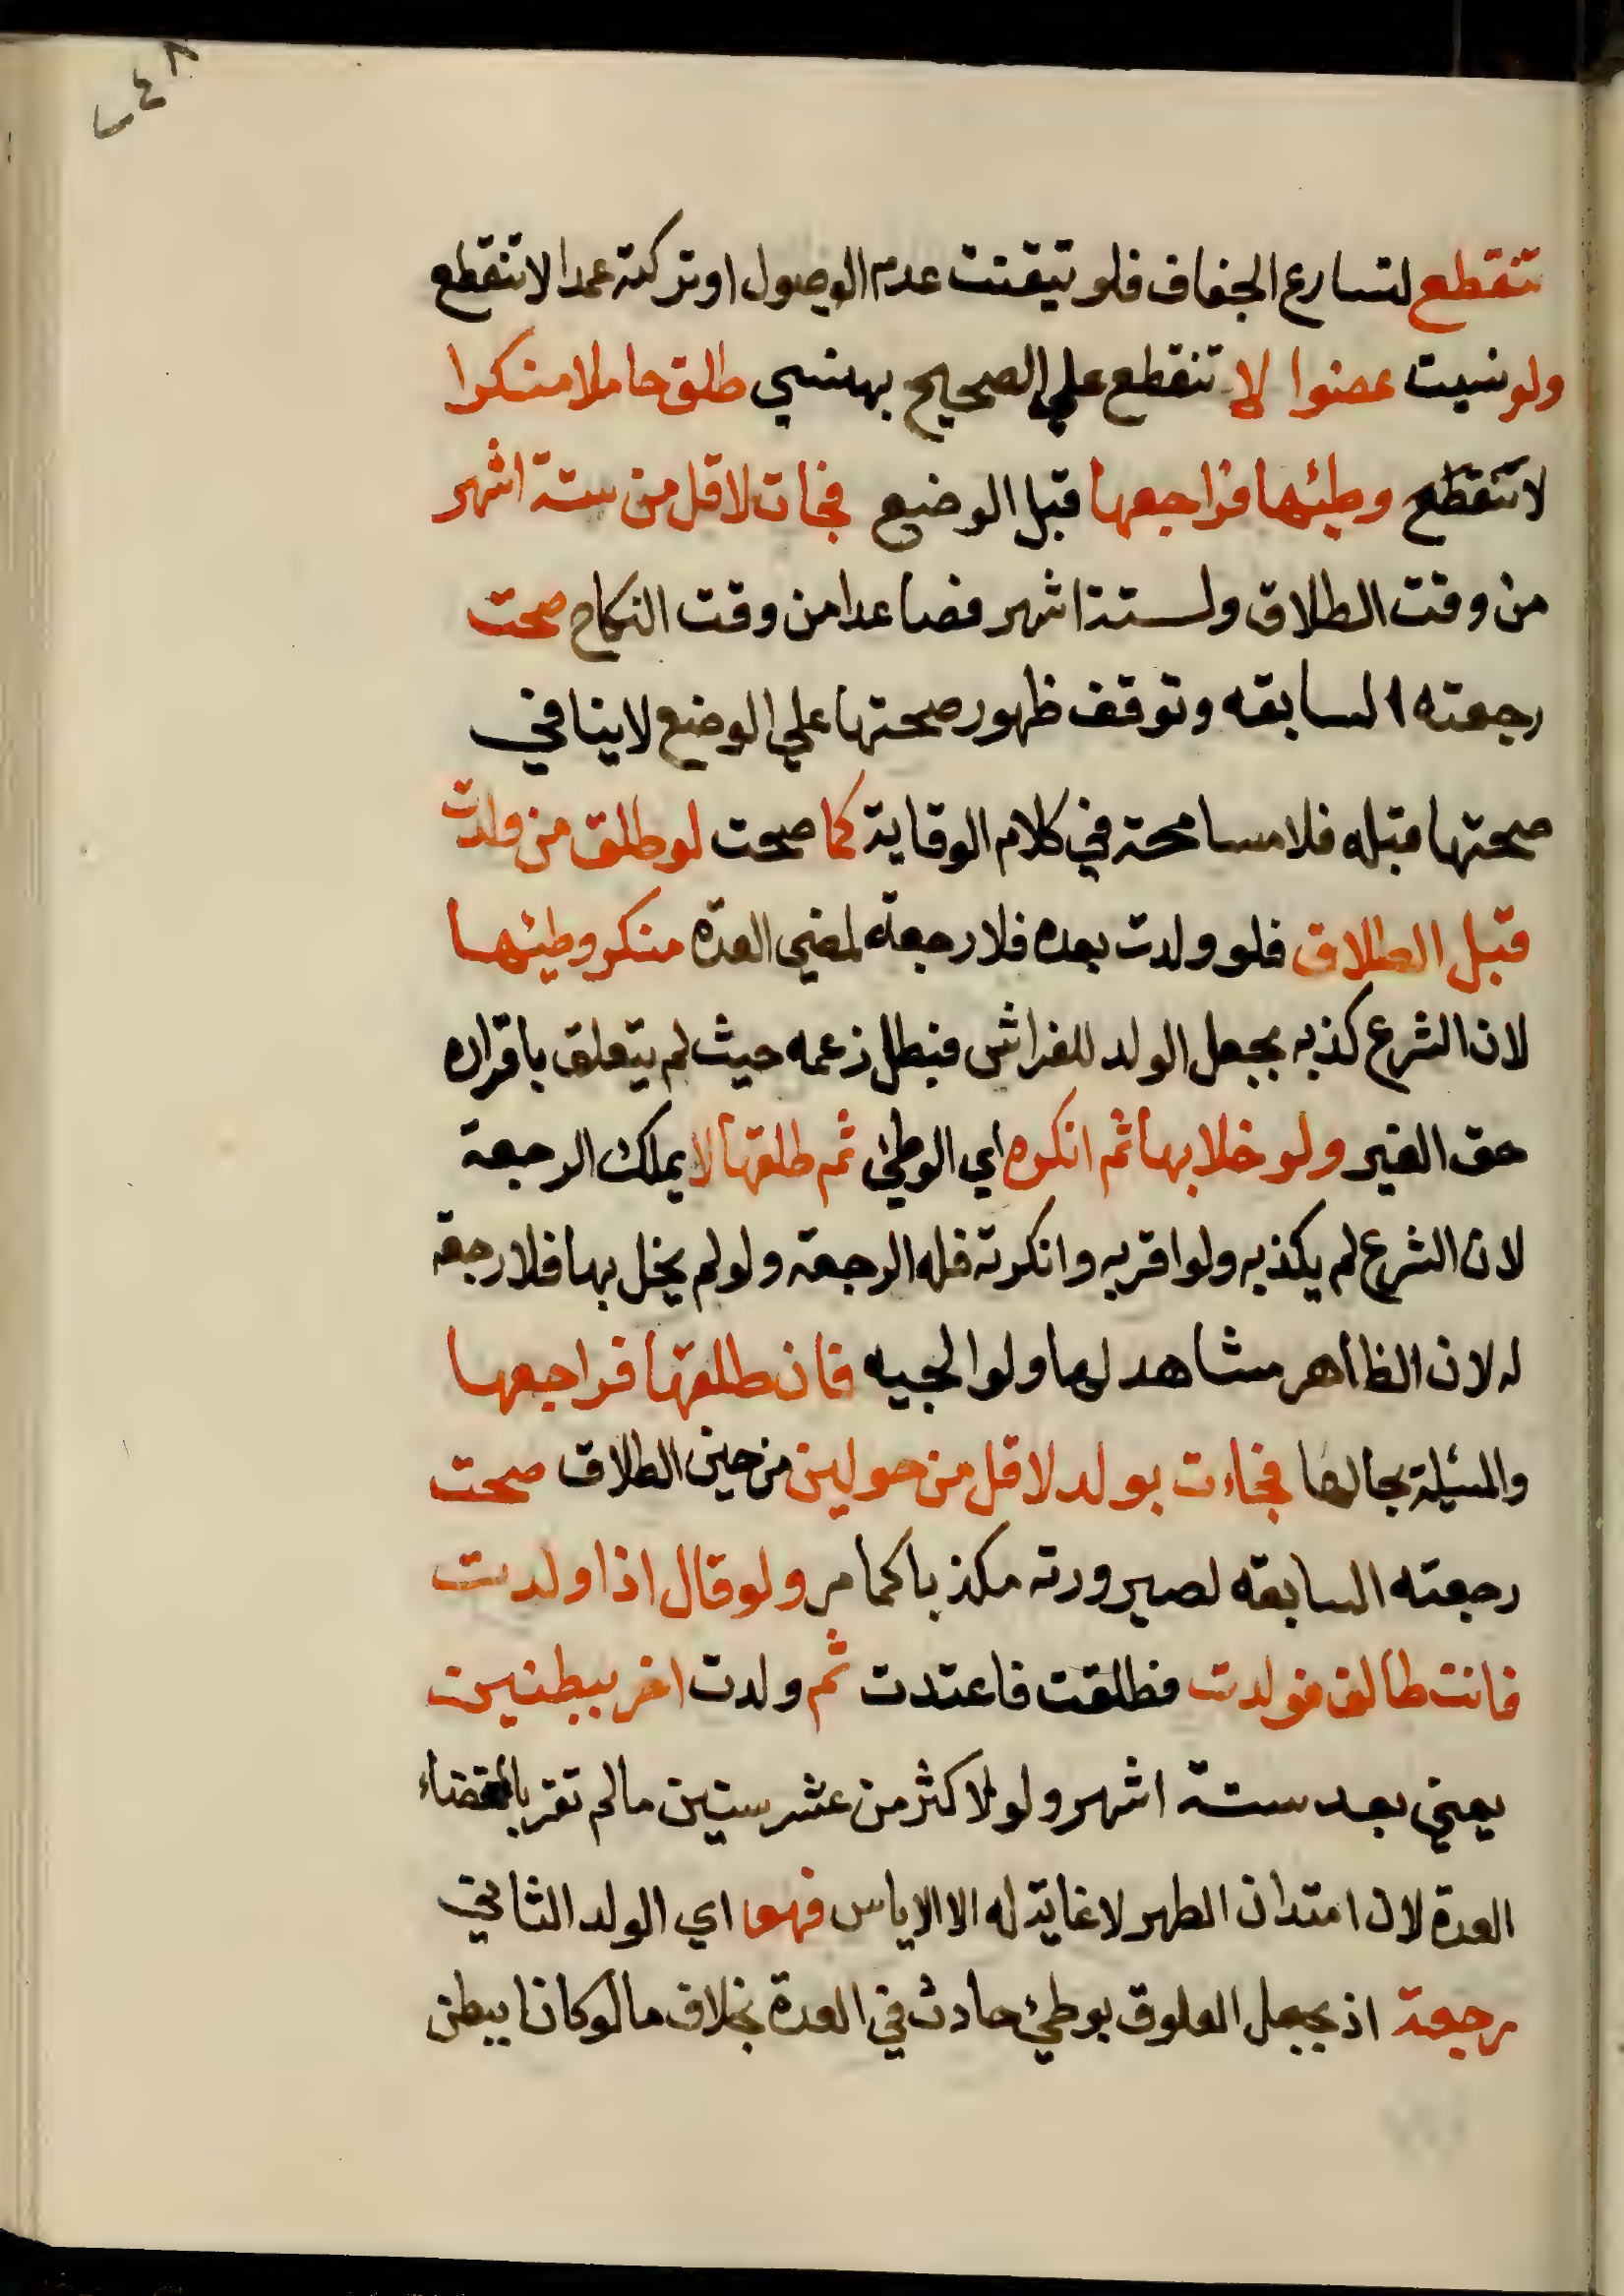 ٢٤٨
تنقطع لتسارع الجفاف فلو تيقنت عدم الوصول او تركته عمدا لا تنقطع
ولو نسيت عضوا لا تنقطع علي الصحيح بهنسي طلق حاملا منكرا
لا تنقطع وطئها فراجعها قبل الوضع فجات لاقل من ستة اشهر
من وقت الطلاق ولستة اشهر فصاعدا من وقت النكاح صحت
رجعته السابقه وتوقف ظهور صحتها علي الوضع لا ينافي
صحتها قبله فلا مسامحة في كلام الوقاية كما صحت لو طلق من ولدت
قبل الطلاق فلو ولدت بعده فلا رجعة لمضي العدة منكر وطئها
لان الشرع كذبه بجعل الولد للفراش فبطل زعمه حيث لم يتعلق باقراره
حق الغير ولو خلا بها ثم انكره اي الوطئ ثم طلقها لا يملك الرجعة
لان الشرع لم يكذبه ولو اقر به وانكرته فله الرجعة ولو لم يخل بها فلا رجعة
له لان الظاهر مشاهد لها ولوالجيه فان طلقها فراجعها
والمسئلة بحالها فجاءت بولد لاقل من حولين من حين الطلاق صحت
رجعته السابقه لصيرورته مكذبا كما مر ولو قال اذا ولدت
فانت طالق فولدت فطلقت فاعتدت ثم ولدت اخر ببطنين
يعني بعد ستة اشهر ولو لاكثر من عشر سنين مالم تقر بانقضاء
العدة لان امتدان الطهر لا غاية له الا الاياس فهو اي الولد الثاني
رجعة اذ يجعل العلوق بوطئ حادث في العدة بخلاف ما لو كانا ببطن